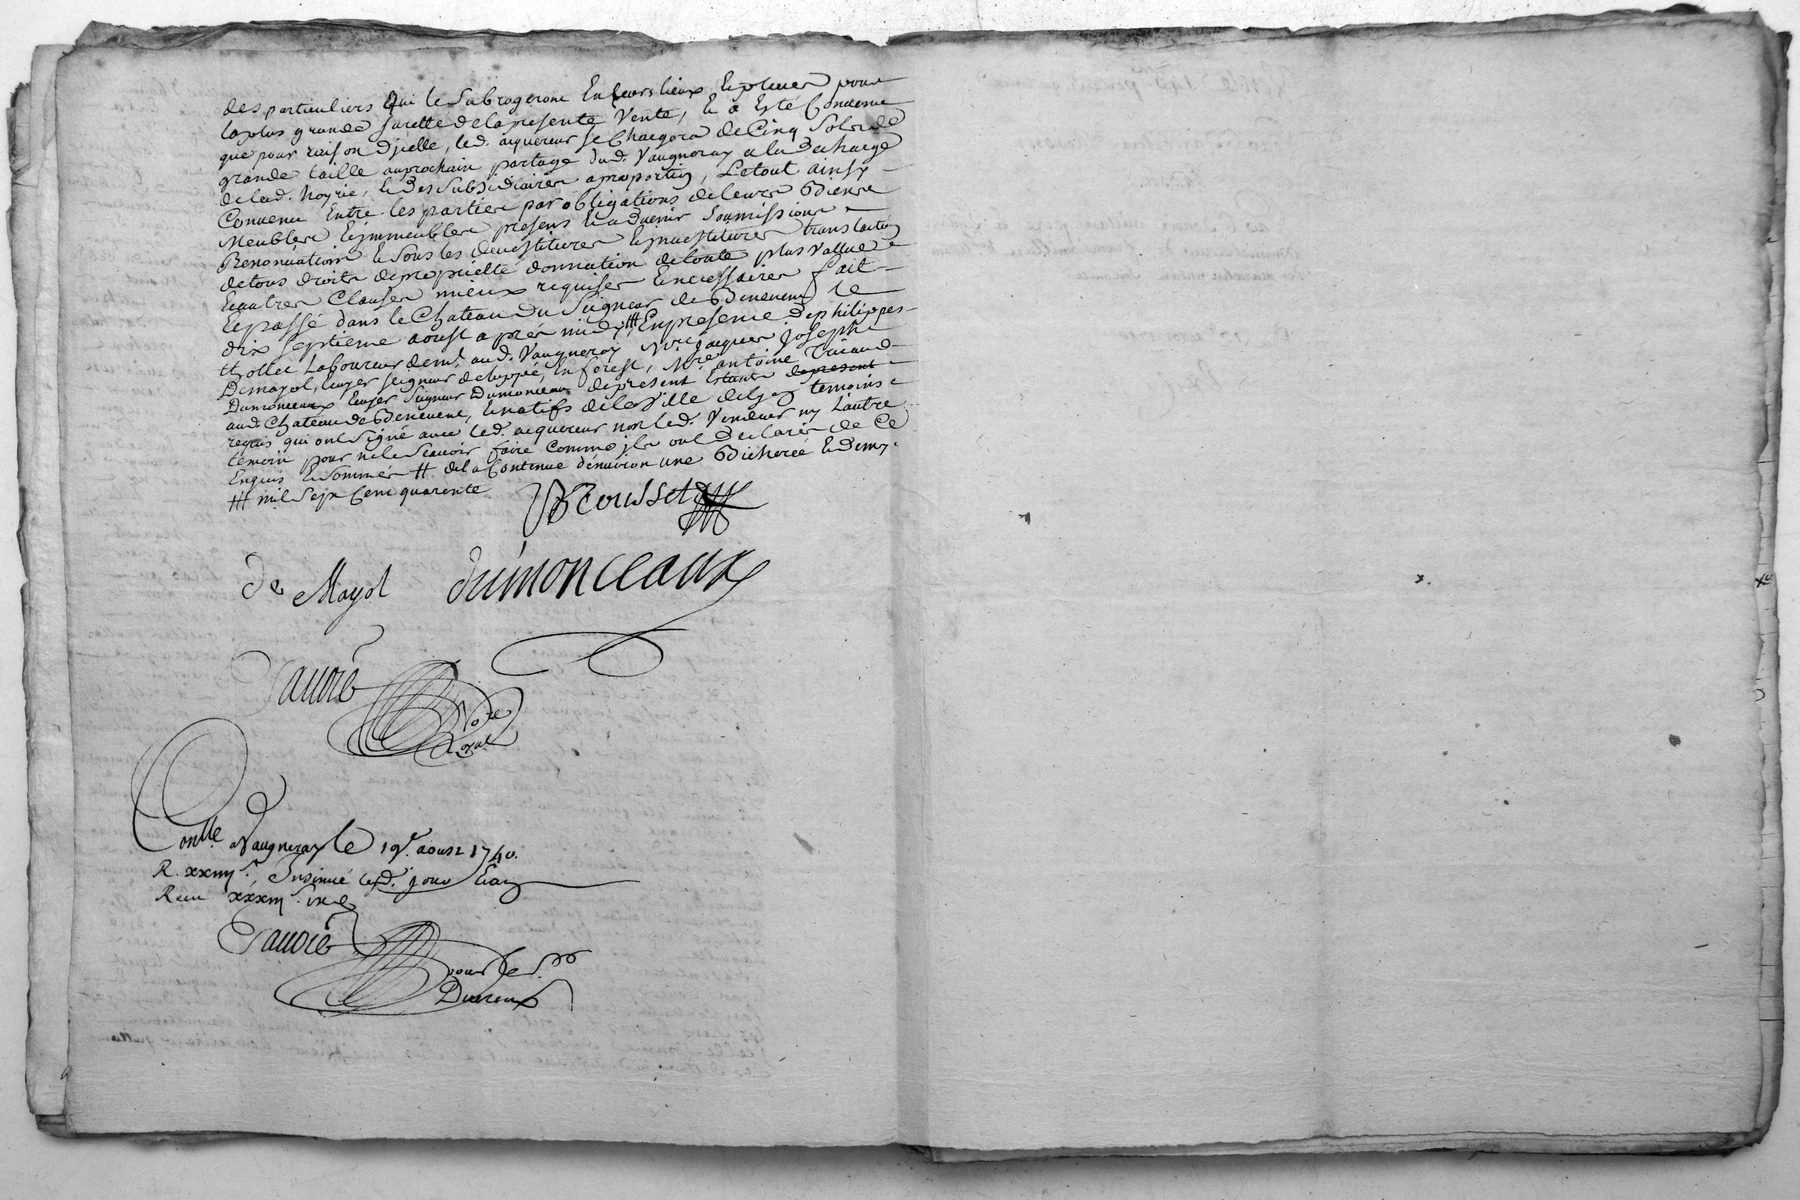 des particuliers qui le Subrogeront En leurs lieux Et places pour
la plus grande surette de la presente Vente, Et a Esté Convenu
que pour raison d'jcelle, led. acquereur se Chargera de Cinq Sols de
grande taille au prochain partage dud. Vaugneray a la decharge
de lad. Noyrie, Et des Subsidiaires a proportion, Le tout ainsy
Convenu Entre les parties par obligations de leurs Biens
Meubles Et jmmeubles presens Et a Venir Soumissions
Renonciations Et Sous les devestitures Et jnvestitures translation
de tous droits de proprietté donnation de toute plus Vallue
Et autres Clauses mieux requises Et necessaires fait
Et passé dans le Chateau du Seigneur de Benevent le
dix Septieme aoust aprés midy ⧻ En presence de philippes
thollet Laboureur dem.t aud. Vaugneray Mre jacques joseph
Demayol, Ecuyer Seigneur de luppé, En forest, Mre antoine
Dumonceaux Ecuyer Seigneur Dumonceaux de present Estants de present
aud. Chateau de Benevent, Et natifs de la Ville de temoins
requis qui ont Signé avec led. acquereur non led. Vendeur ny L'autre
temoin pour ne le Scavoir faire Comme jls ont declarés de Ce
Enquis Et Sommés # de la Contenue d'environ une Bicherée Et demy
⧻ mil Sept Cent quarente
Brousset
de Mayol dumonceaux
Not.re
Royal
Conllé a Vaugneray le 19e aoust 1740.
R. xxiiij s. Insinué led. jour
Recu
pour le S.r